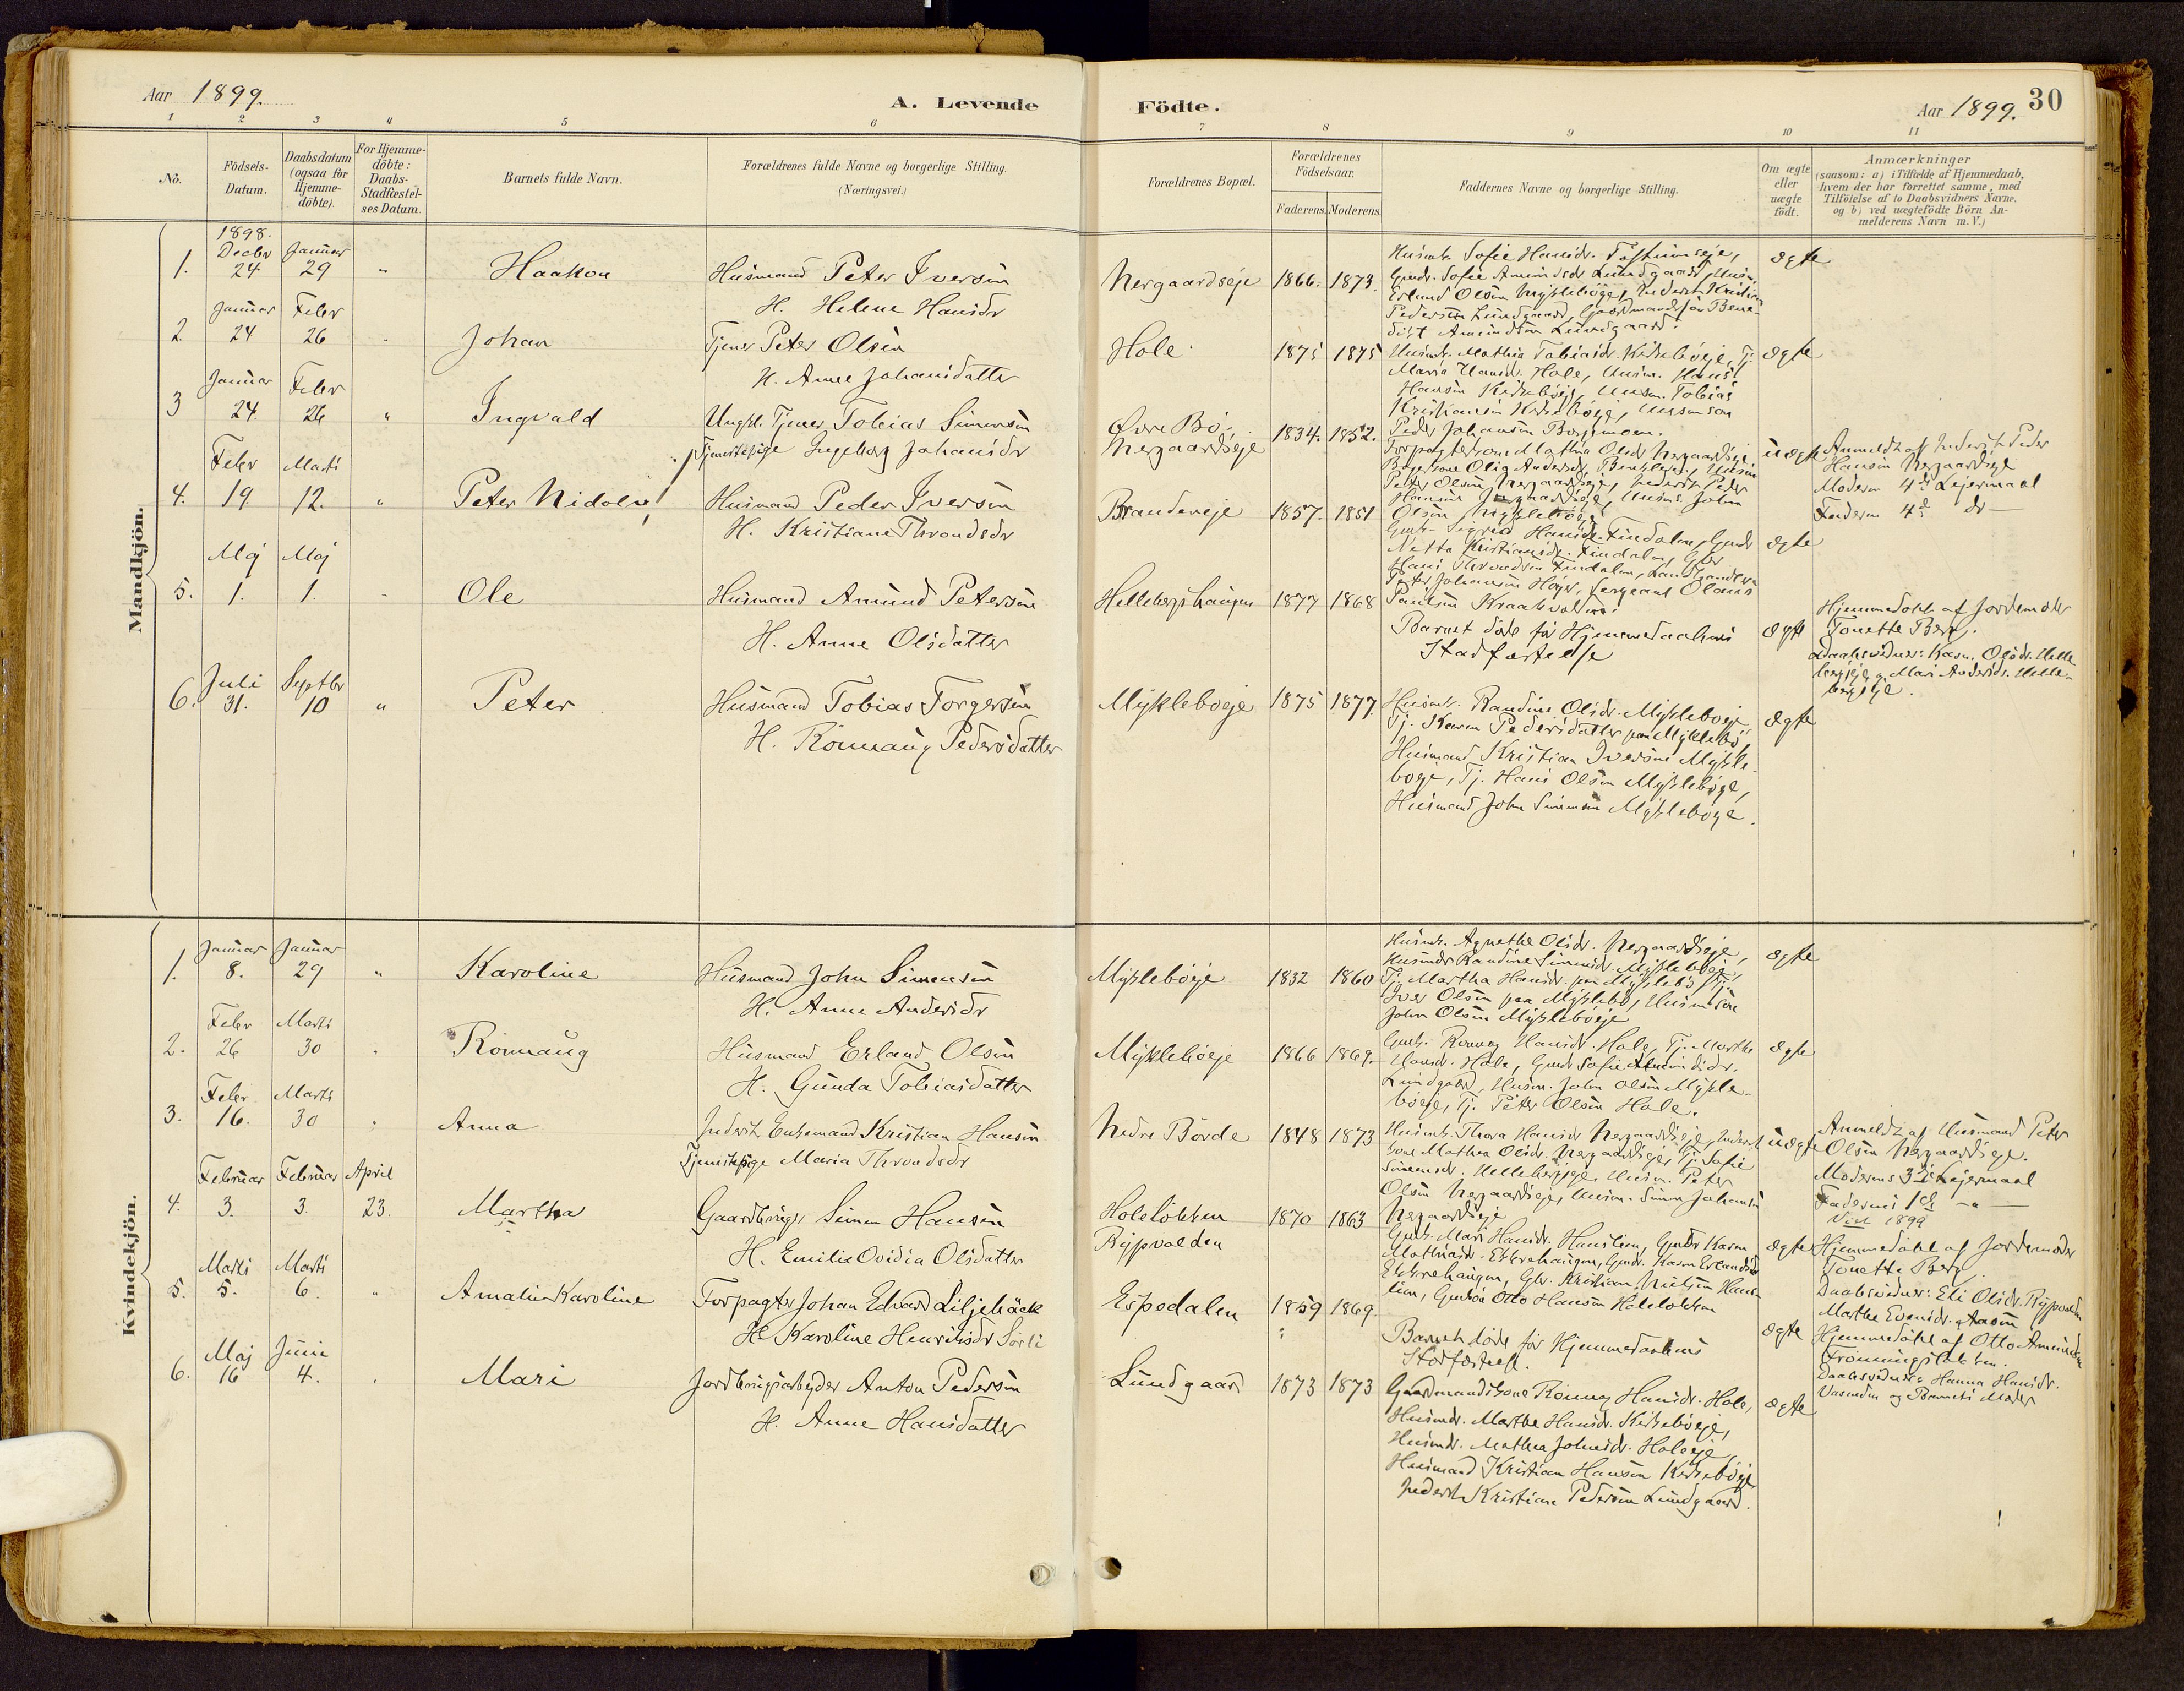 Aar 1899.
A. Levende
Födte.
Aar 1899.
30
1 2 3 4 5 6 7 8 9 10 11
No.
Födsels-
Datum.
Daabsdatum
(ogsaa for
Hjemme-
döbte).
For Hjemme-
döbte:
Daabs-
Stadfæstel-
ses Datum.
Barnets fulde Navn.
Forældrenes fulde Navne og borgerlige Stilling.
(Næringsvei.)
Forældrenes Bopæl.
Forældrenes
Födselsaar.
Faderens. Moderens.
Faddernes Navne og borgerlige Stilling.
Om ægte
eller
uægte
födt.
Anmærkninger
(saasom: a) i Tilfælde af Hjemmedaab,
hvem der har forrettet samme, med
Tilföielse af to Daabsvidners Navne,
og b) ved uægtefödte Börn An-
melderens Navn m. V.)
Mandkjön.
1898.
Decbr Januar
1. 24 29 " Haakon Husmand Peter Iversen
H. Helene Hansdr
Nergaardseje 1866. 1873.
Husmk. Sofie Hansdr.
Gmdr. Sofie Amundsdr Lundgaard,
Erland Olsen Myklebøeje, Inderst Kristian
Pedersen Lundgaard, Gaardmandssøn Bene-
dikt Amundsen Lundgaard.
ægte
Januar Febr
2. 24 26 Johan Tjener Peter Olsen
H. Anne Johansdatter
Hole 1875 1875
Husmk. Mathea Tobiasdr. Tj.
Maria Hansdr. Hole, Husm. Hans
Hansen Husm. Tobias
Kristiansen
Peder Johansen
ægte
Januar Febr
3 24. 26 " Ingvald Ungk. Tjener Tobias Simensen
Tjenestepige Ingeborg Johansdr
Øvre Bø.
Nergaardseje
1834. 1852.
Mathea Olsdr Nergaardseje
Peter Olsen Nergaardseje, Inderst Peder
Hansen Nergaardseje, Husm. John
Olsen Myklebøeje
uægte
Anmeldt af Inderst Peder
Hansen Nergaardseje
Moderen 4de Lejermaal
Faderen 4de do —
Febr Marts
4. 19 12. " Peter Nidolv Husmand Peder Iversen
H. Kristiane Throndsdr
Brandeneje 1857. 1851
Gmk. Sigrid Hansdr. Findalen, Gmdr
Netta Kristiansdr. Findalen, Gbr.
Hans Throndsen Findalen, Landhandler
Peter Johansen Sergeant Olaus
Paulsen
ægte
Maj Maj
5. 1. 1. Ole Husmand Amund Petersen
H. Anne Olsdatter
Hellebergshaugen 1877 1868
Barnet døde før Hjemmedaabens
Stadfæstelse
ægte
Hjemmedøbt af Jordemoder
Tonette Berg.
Daabsvidner: Karen Olsdr. Helle-
bergseje og Mari Andersdr. Helle-
bergseje.
Juli Septbr
6. 31. 10 " Peter Husmand Tobias Torgersen
H. Rønnaug Pedersdatter
Myklebøeje 1875 1877.
Husmk. Randine Olsdr. Myklebøeje,
Tj. Karen Pedersdatter paa Myklebø,
Husmand Kristian Iversen Mykle-
bøeje, Tj. Hans Olsen Myklebøeje,
Husmand John Simensen Myklebøeje.
ægte
Kvindekjön.
Januar Januar
1. 8. 29 " Karoline Husmand John Simensen
H. Anne Andersdr
Myklebøeje 1832 1860
Husmk. Agnethe Olsdr. Nergaardseje,
Husmdr. Randine Simensdr. Myklebøeje,
Tj. Martha Hansdr. paa Myklebø, Tj.
Iver Olsen paa Myklebø, Husmsøn
John Olsen Myklebøeje
ægte
Febr Marts
2. 26 30 Rønnaug Husmand Erland Olsen
H. Gunda Tobiasdatter
Myklebøeje 1866 1869.
Gmk. Rønnog Hansdr. Hole, Tj. Marthe
Hansdr. Hole, Gmdr Sofie Amundsdr.
Lundgaard, Husm. John Olsen Mykle-
bøeje, Tj. Peter Olsen Hole.
ægte
Febr Marts
3. 16. 30 Anna Inderst Enkemand Kristian Hansen
Tjenestepige Maria Throndsdr
Nedre Børde 1848 1873
Husmk. Thora Hansdr Nergaardseje, Inderst-
kone Mathea Olsdr. Nergaardseje, Tj. Sofie
Simensdr. Hellebergseje, Husm. Peter
Olsen Nergaardseje, Husm. Simen Johansen
Nergaardseje
uægte
Anmeldt af Husmand Peter
Olsen Nergaardseje.
Moderens 3die Lejermaal
Faderens 1ste —"—
1899
Februar Februar April
4. 3. 3. 23. Martha Gaardbruger Simen Hansen
H. Emilie Ovidia Olsdatter
Holeløkken
Rypvolden
1870 1863
Gmk. Mari Hansdr. Hanslien, Gmdr Karen
Mathiasdr. Gmdr. Karen Erlandsdr
Gbr. Kristian Nielsen Hans-
lien, Gmdsøn Otto Hansen Holeløkken
ægte
Hjemmedøbt af Jordemoder
Tonette Berg.
Daabsvidner: Eli Olsdr. Rypvolden
Marthe Evensdr. Aasen
Marts Marts
5. 5. 6. " Amalie Karoline Forpagter Johan Edvard Liljebäck
H. Karoline Henriksdr Sørli
Espedalen 1859 1869.
Barnet døde før Hjemmedaabens
Stadfæstelse.
ægte
Hjemmedøbt af Otto Amundsen
Daabsvidner: Hanna Hansdr.
og Barnets Moder
Maj Juni
6. 16 4. Mari Jordbrugsarbejder Anton Pedersen
H. Anne Hansdatter
Lundgaard 1873 1873
Gaardmandskone Rønnog Hansdr. Hole,
Husmdr. Marthe Hansdr.
Husmdr. Mathea Johnsdr. Holeeje,
Husmand Kristian Hansen
Inderst Kristian Pedersen Lundgaard.
ægte